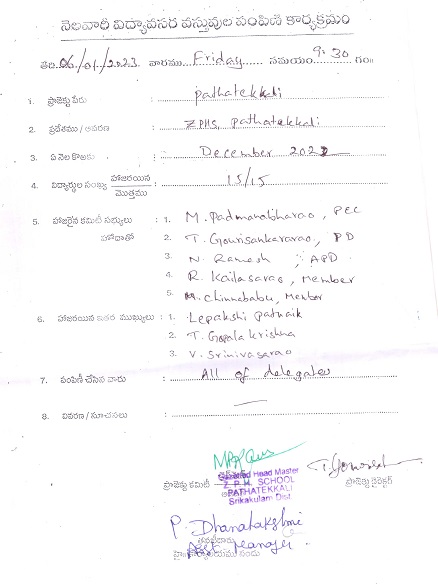 నెలవారీ విద్యావసర వస్తువుల పంపిణీ కార్యక్రమం
తేది. 06/01/2023 వారము Friday సమయం 9:30 గం॥
1. ప్రాజెక్టు పేరు : pathatekkali
2. ప్రదేశము / ఆవరణ : ZPHS, Pathatekkali
3. ఏ నెల కొఱకు : December 2022
4. విద్యార్థుల సంఖ్య హాజరయిన / మొత్తము : 15/15
5. హాజరైన కమిటీ సభ్యులు : 1. M. Padmanabharao, PEC
హోదాతో 2. T. Gourisankararao, PD
3. N. Ramesh, APD
4. R. Kailasarao, Member
5. M. Chinnababu, Member
6. హాజరయిన ఇతర ముఖ్యులు : 1. Lepakshi Patnaik
2. T. Gopala Krishna
3. V. Srinivasarao
7. పంపిణీ చేసిన వారు : All of delegates
8. వివరణ / సూచనలు :
ప్రాజెక్టు కమిటీ
Head Master
Z.P.H. SCHOOL
PATHATEKKALI
Srikakulam Dist
ప్రాజెక్టు డైరెక్టర్
P. Dhanalakshmi
Manager